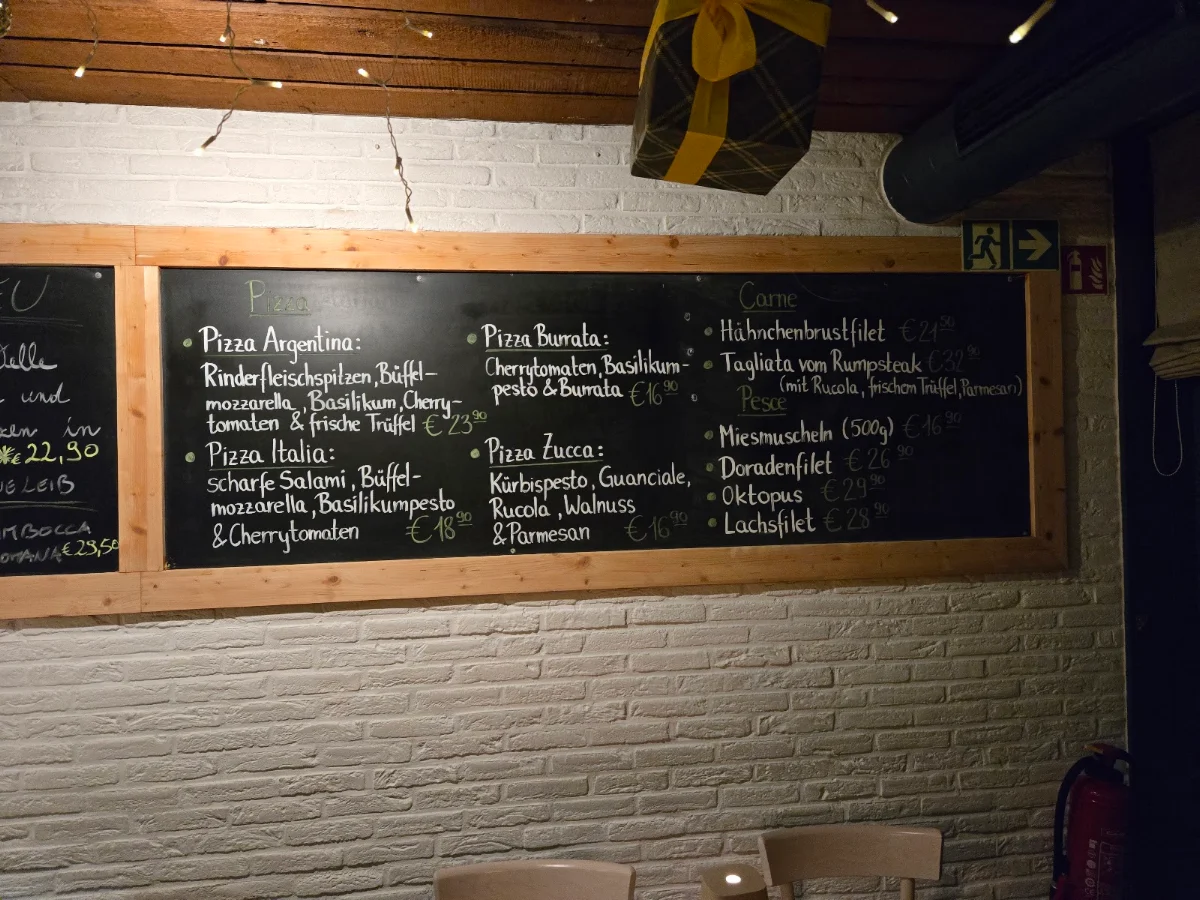 EU
telle
und
zen in
€ 22,90
LEIB
MBOCCA
OMANA € 23,50
Pizza
Pizza Argentina:
Rinderfleischspitzen, Büffel-
mozzarella, Basilikum, Cherry-
tomaten & frische Trüffel € 23⁹⁰
Pizza Italia:
scharfe Salami, Büffel-
mozzarella, Basilikumpesto
& Cherrytomaten € 18⁹⁰
Pizza Burrata:
Cherrytomaten, Basilikum-
pesto & Burrata € 16⁹⁰
Pizza Zucca:
Kürbispesto, Guanciale,
Rucola, Walnuss
& Parmesan € 16⁹⁰
Carne
Hähnchenbrustfilet € 21⁵⁰
Tagliata vom Rumpsteak € 32⁹⁰
(mit Rucola, frischem Trüffel, Parmesan)
Pesce
Miesmuscheln (500g) € 16⁹⁰
Doradenfilet € 26⁹⁰
Oktopus € 29⁹⁰
Lachsfilet € 28⁹⁰